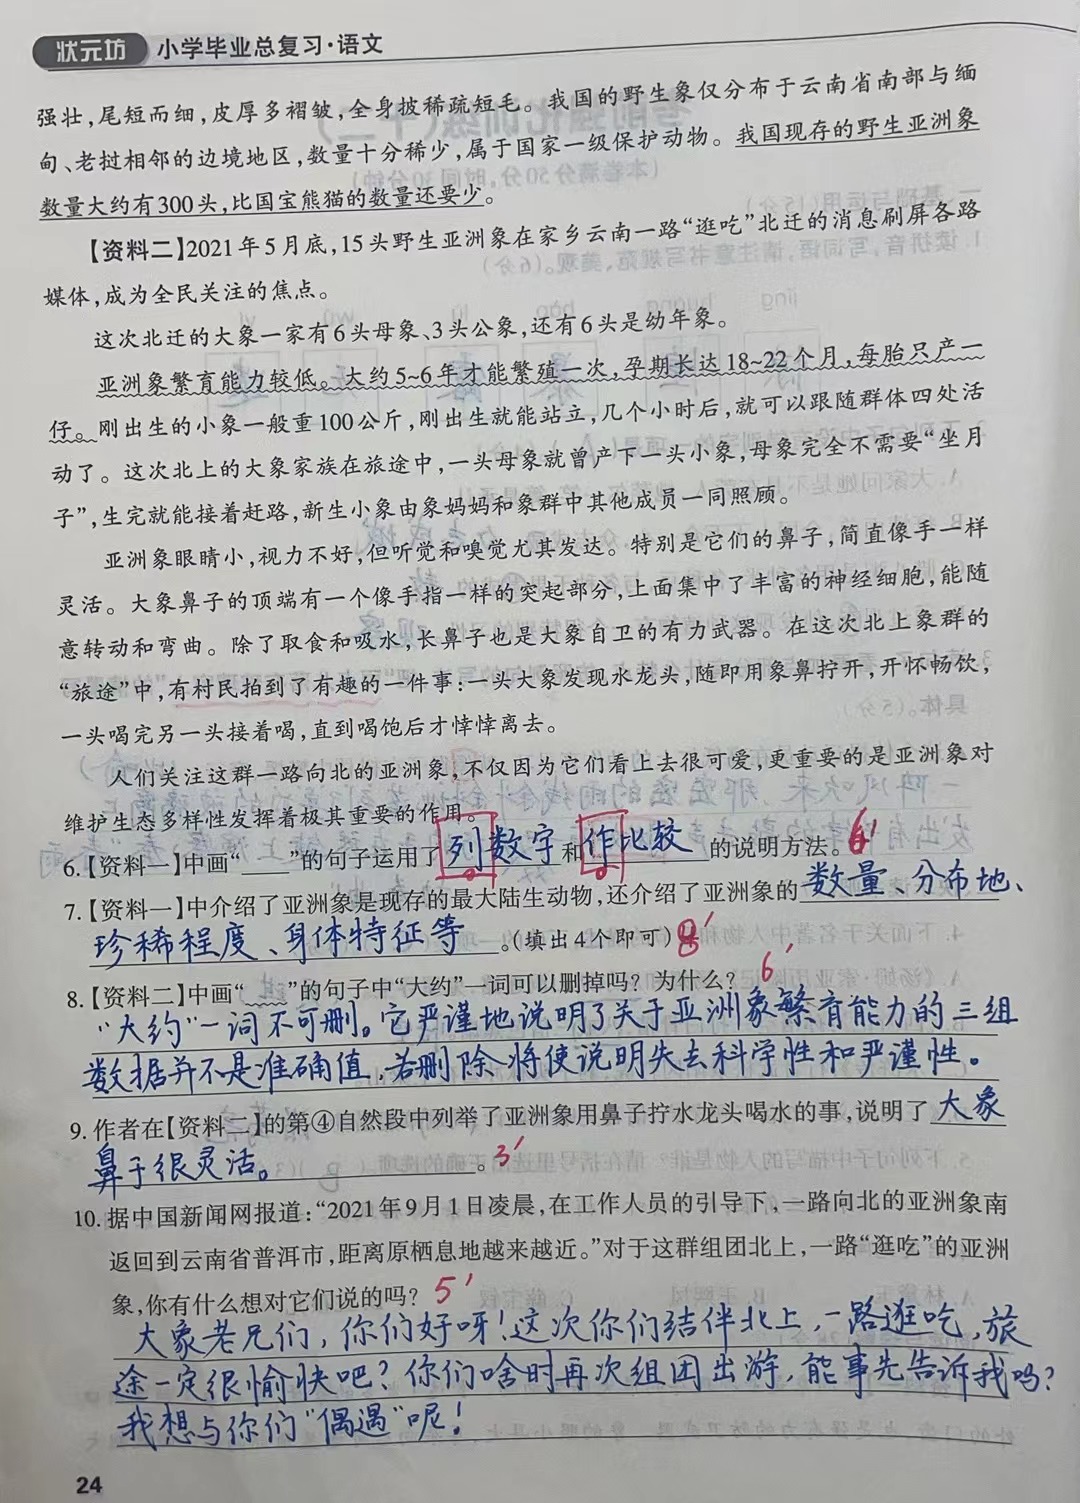 状元坊 小学毕业总复习·语文
强壮,尾短而细,皮厚多褶皱,全身披稀疏短毛。我国的野生象仅分布于云南省南部与缅
甸、老挝相邻的边境地区,数量十分稀少,属于国家一级保护动物。我国现存的野生亚洲象
数量大约有300头,比国宝熊猫的数量还要少。
【资料二】2021年5月底,15头野生亚洲象在家乡云南一路“逛吃”北迁的消息刷屏各路
媒体,成为全民关注的焦点。
这次北迁的大象一家有6头母象、3头公象,还有6头是幼年象。
亚洲象繁育能力较低。大约5~6年才能繁殖一次,孕期长达18~22个月,每胎只产一
仔。刚出生的小象一般重100公斤,刚出生就能站立,几个小时后,就可以跟随群体四处活
动了。这次北上的大象家族在旅途中,一头母象就曾产下一头小象,母象完全不需要“坐月
子”,生完就能接着赶路,新生小象由象妈妈和象群中其他成员一同照顾。
亚洲象眼睛小,视力不好,但听觉和嗅觉尤其发达。特别是它们的鼻子,简直像手一样
灵活。大象鼻子的顶端有一个像手指一样的突起部分,上面集中了丰富的神经细胞,能随
意转动和弯曲。除了取食和吸水,长鼻子也是大象自卫的有力武器。在这次北上象群的
“旅途”中,有村民拍到了有趣的一件事:一头大象发现水龙头,随即用象鼻拧开,开怀畅饮,
一头喝完另一头接着喝,直到喝饱后才悻悻离去。
人们关注这群一路向北的亚洲象,不仅因为它们看上去很可爱,更重要的是亚洲象对
维护生态多样性发挥着极其重要的作用。
6.【资料一】中画“____”的句子运用了列数字和作比较的说明方法。6′
7.【资料一】中介绍了亚洲象是现存的最大陆生动物,还介绍了亚洲象的数量、分布地、
珍稀程度、身体特征等。(填出4个即可)8′
8.【资料二】中画“﹏﹏”的句子中“大约”一词可以删掉吗?为什么?6′
“大约”一词不可删。它严谨地说明了关于亚洲象繁育能力的三组
数据并不是准确值,若删除将使说明失去科学性和严谨性。
9.作者在【资料二】的第④自然段中列举了亚洲象用鼻子拧水龙头喝水的事,说明了大象
鼻子很灵活。。3′
10.据中国新闻网报道:“2021年9月1日凌晨,在工作人员的引导下,一路向北的亚洲象南
返回到云南省普洱市,距离原栖息地越来越近。”对于这群组团北上,一路“逛吃”的亚洲
象,你有什么想对它们说的吗?5′
大象老兄们,你们好呀!这次你们结伴北上,一路逛吃,旅
途一定很愉快吧?你们啥时再次组团出游,能事先告诉我吗?
我想与你们“偶遇”呢!
24